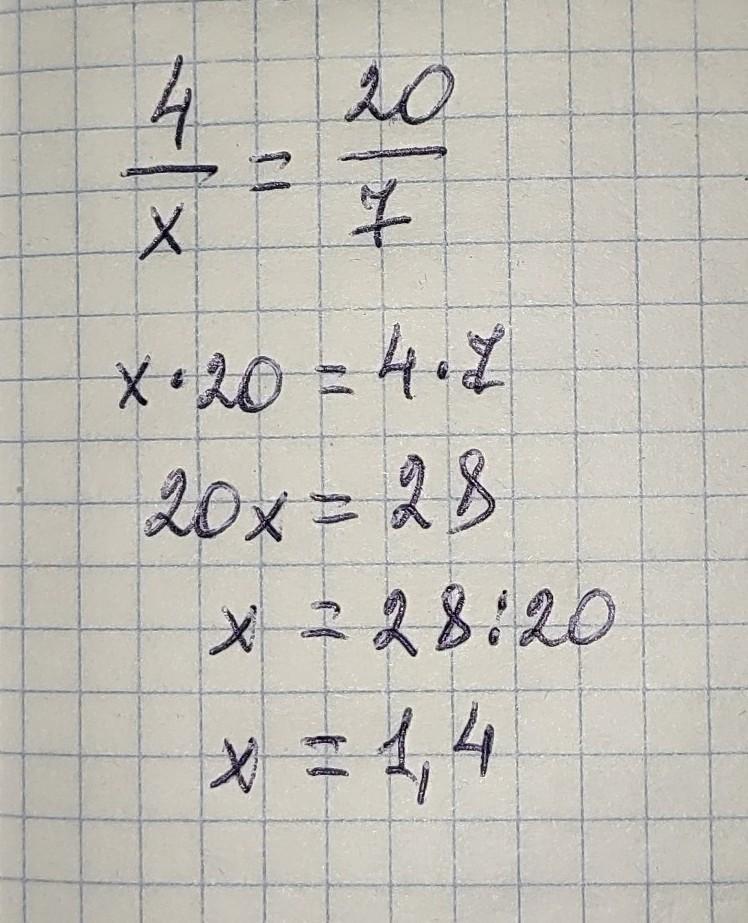 4/x = 20/7
x·20 = 4·7
20x = 28
x = 28:20
x = 1,4